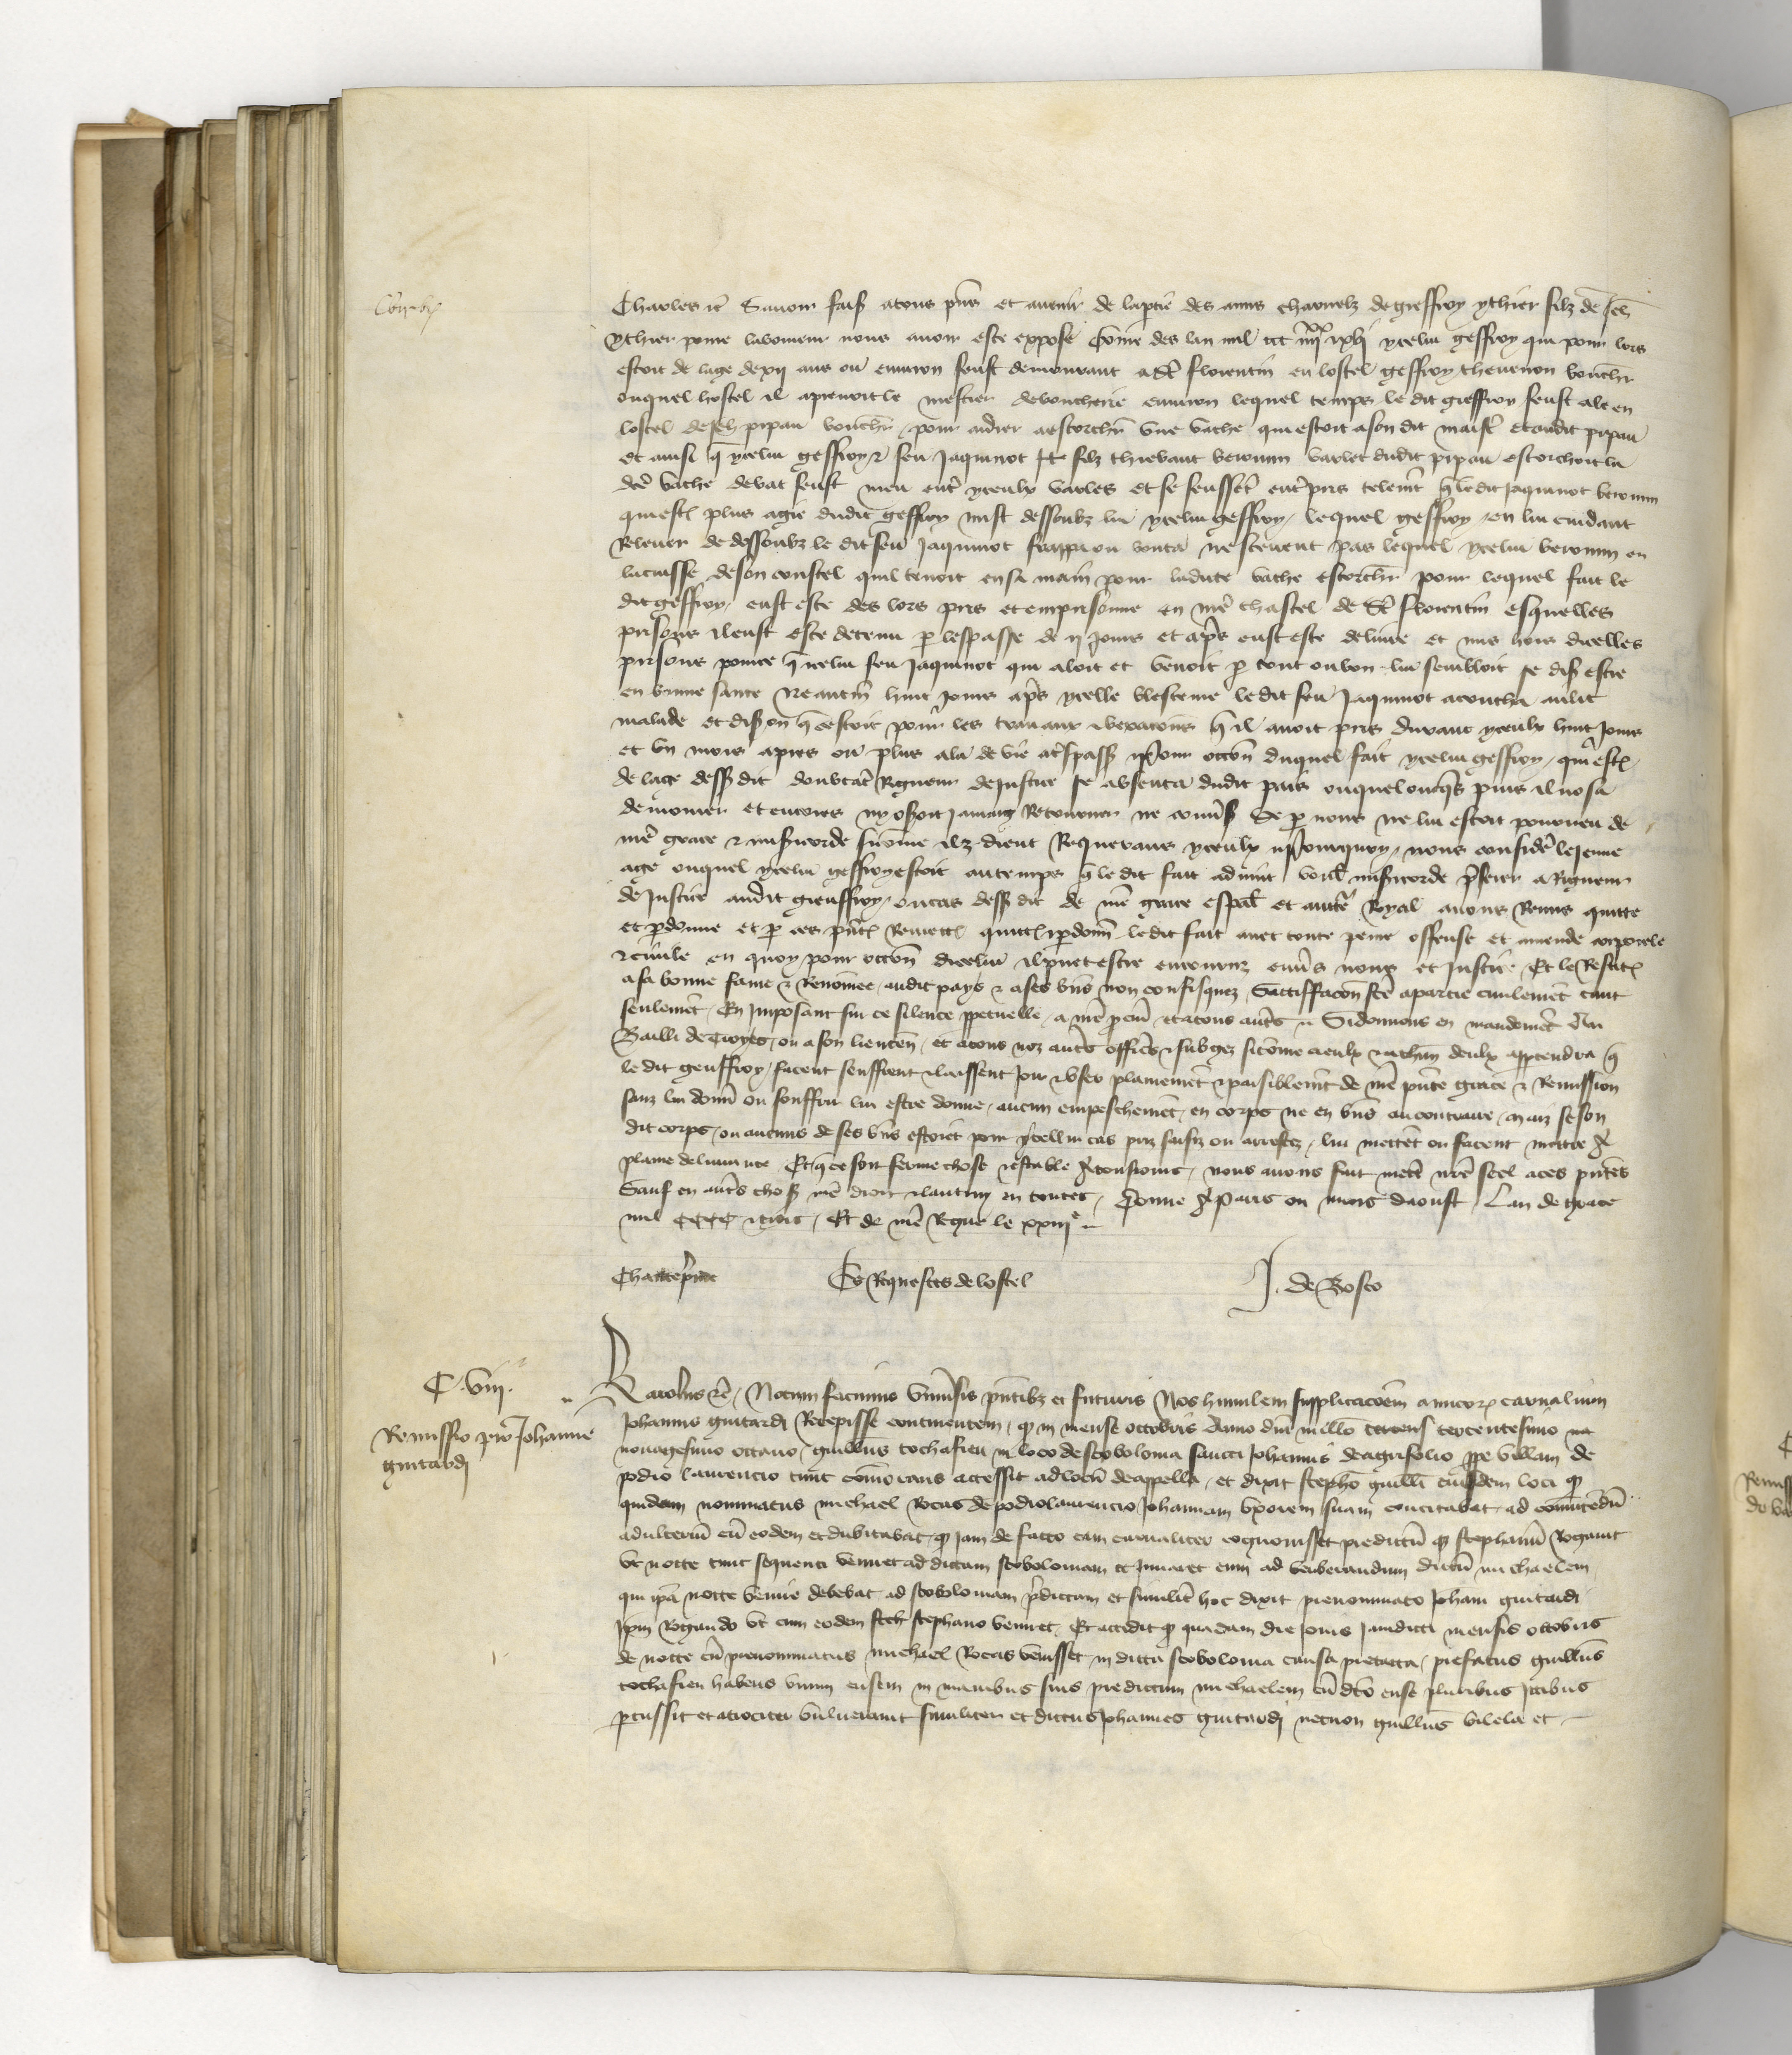 Charles etc̃ Sauoir fais̃ atous pñs et auenir de laptie des amis charnelz de gieffroy ythier filz de Jeh̃
ythier poure laboureur nous auoir este expose Com̃e des lan mil ccc iiiixx xvj ycelui geffroy qui pour lors
estoit de laage de xij ans ou enuiron feust demourant a S̃t florentin en lostel geffroy theuenon bouch̃r
ouquel hostel il aprenoit le mestier de boucherie enuiron lequel temps le dit gieffroy feust ale en
lostel de Jeh̃ pipau bouch̃r pour aidier a escorch̃r vne vache qui estoit a son dit maist̃ et audit pipau
et ainsi q̃ ycelui geffroy & feu Jaquinot filz thiebaut beronin varlet dudit pipau escorchoit la
dc̃e vache debat feust meu ent̃ yceulx varles et se feussẽt ent̃pris telem̃t q̃ ledit Jaquinot beronin
qui est̃ plus aagie dudit geffroy mist dessoubz lui ycelui geffroy / lequel geffroy en lui cuidant
Releuer de dessoubz le dit feu Jaquinot frappa ou bouta ne sceuent pas lequel ycelui beronin en
la cuisse de son coustel quil tenoit en sa main pour ladicte vache escorch̃r pour lequel fait le
dit geffroy / eust este des lors pris et emprisonne en nr̃e chastel de S̃t florentin esquelles
prisons il eust este detenu p̱ lespasse de ij Jours et ap̃s eust este deliure et mis hors dicelles
prisons pource q̃ icelui feu Jaquinot qui aloit et venoit p̱ tout ou bon lui sembloit se dis̃ estre
en bonne sante Neantm̃ huit Jours ap̃s ycelle blesceure ledit feu Jaquinot acoucha au lit
malade et dis̃ on q̃ cestoit pour les trauaux & vexacõns q̃ il auoit pris durant yceulx huit Jours
et vn mois apres ou plus ala de vie a t̃spass̃ Pour occõn duquel fait ycelui geffroy / qui est̃
de laage dess̃ dit doubtãt Rigueur de Justice se absenta dudit pais ouquel oncq̃s puis il nosa
demourer et encores ny oseroit Jamaiz Retourner ne conũs̃ se p̱ nous ne lui estoit pourueu de
nr̃e grace & mis̃icorde sicom̃e ilz dient Requerans yceulx Pourquoy / nous consider̃ le Jeune
aage ouquel ycelui geffroy estoit au temps q̃ le dit fait aduint voul̃ mis̃icorde p̃ferer a Rigueur
de Justice audit gieuffroy / ou cas dess̃ dit de nr̃e grace esp̃al et auct̃e Royal auons Remis quitte
et p̱donne et p̱ ces pñt̃ Remett̃ quitt̃ & p̱donñ le dit fait auec toute peine offense et amende corporele
& ciuile en quoy pour occõn dicelui il puet estre encouruz enũs nous et Justice Et le Restit̃
a sa bonne fame & Renom̃ee / audit pays & a ses b̃ns non confisquez Sattiffacõn fc̃e a partie ciuilemẽt tant
seulemẽt / En Imposant sur ce silence p̱petuelle / a nr̃e p̱cur̃ et a tous aut̃s Si donnons en mandemẽt Au
Bailli de Troyes / ou a son lieuteñ / et a tous noz aut̃s offic̃s & subgez sicom̃e a eulx & a chun̄ deulx app̱tendra q̃
le dit geuffroy / facent seuffrent & laissent Joir & vser plainemẽt & paisiblem̃t de nr̃e pñte grace & Remission
sanz lui donñ ou souffrir lui estre donne / aucun empeschemẽt / en corps ne en b̃ns au contraire / maiz se son
dit corps / ou aucuns de ses b̃ns estoiẽt pour ycellui cas priz saisiz ou arrestez / lui mettẽt ou facent mettre a
plaine deliurance Et q̃ ce soit ferme chose & estable a tousiours / nous auons fait mett̃ nr̃e seel a ces pñtes
Sauf en aut̃s chos̃ nr̃e droit & lautruy en toutes / Donne a Paris ou mois daoust Lan de grace
mil CCCC & trois / Et de nr̃e Regne le xxiije
Chanteprime Es Requestes de lostel J. de Bosco
C. viij.
Remissio pro Johanne
guitardj
Karolus etc̃ / Notum facimus vniũsis pñtibz et futuris Nos humilem supplicacõem amicor̃ carnalium
Johannis guitardj Recepisse continentem / q̱ in mense octobris Anno dñi mill̃o trecentesimo
nonagesimo octauo / guill̃us tochafieu in loco de scobolonia sancti Johannis de agrifolio p̱pe villam de
podio laurencio tunc com̃orans accessit ad locũ de appella / et dixit steph̃o guill̃i eiusdem loci q̱
quidam nominatus michael Rocas de podiolaurencio Johannam vxorem suam concitabat ad com̃itẽdũ
adulteriũ cũ eodem et dubitabat q̱ jam de facto eam carnaliter cognouisset predictũ q̱ stephanũ Rogauit
vt nocte tunc sequenti veniret ad dictam scoboloniam et Juuaret eum ad verberandum dictũ michaelem
qui ip̃a nocte venire debebat ad scoboloniam p̃dictam et similit̃ hoc dixit prenominato Joh̃ani guitardi
Jp̃m Rogando vt cum eodem stephano veniret / Et accidit q̱ quadam die Jouis Jamdicti mensis octobris
de nocte cũ prenominatus michael Rocas venisset in dicta scobolonia causa pretacta / prefatus guill̃us
tochafieu habens vnum ensem in manibus suis predictum michaelem cũ dc̃o ense pluribus Jctibus
p̱cussit et atrociter vulnerauit similiter et dictus Johannes guitardj necnon guill̃us vilela et